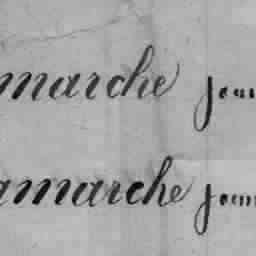 marche jean
amarche jean